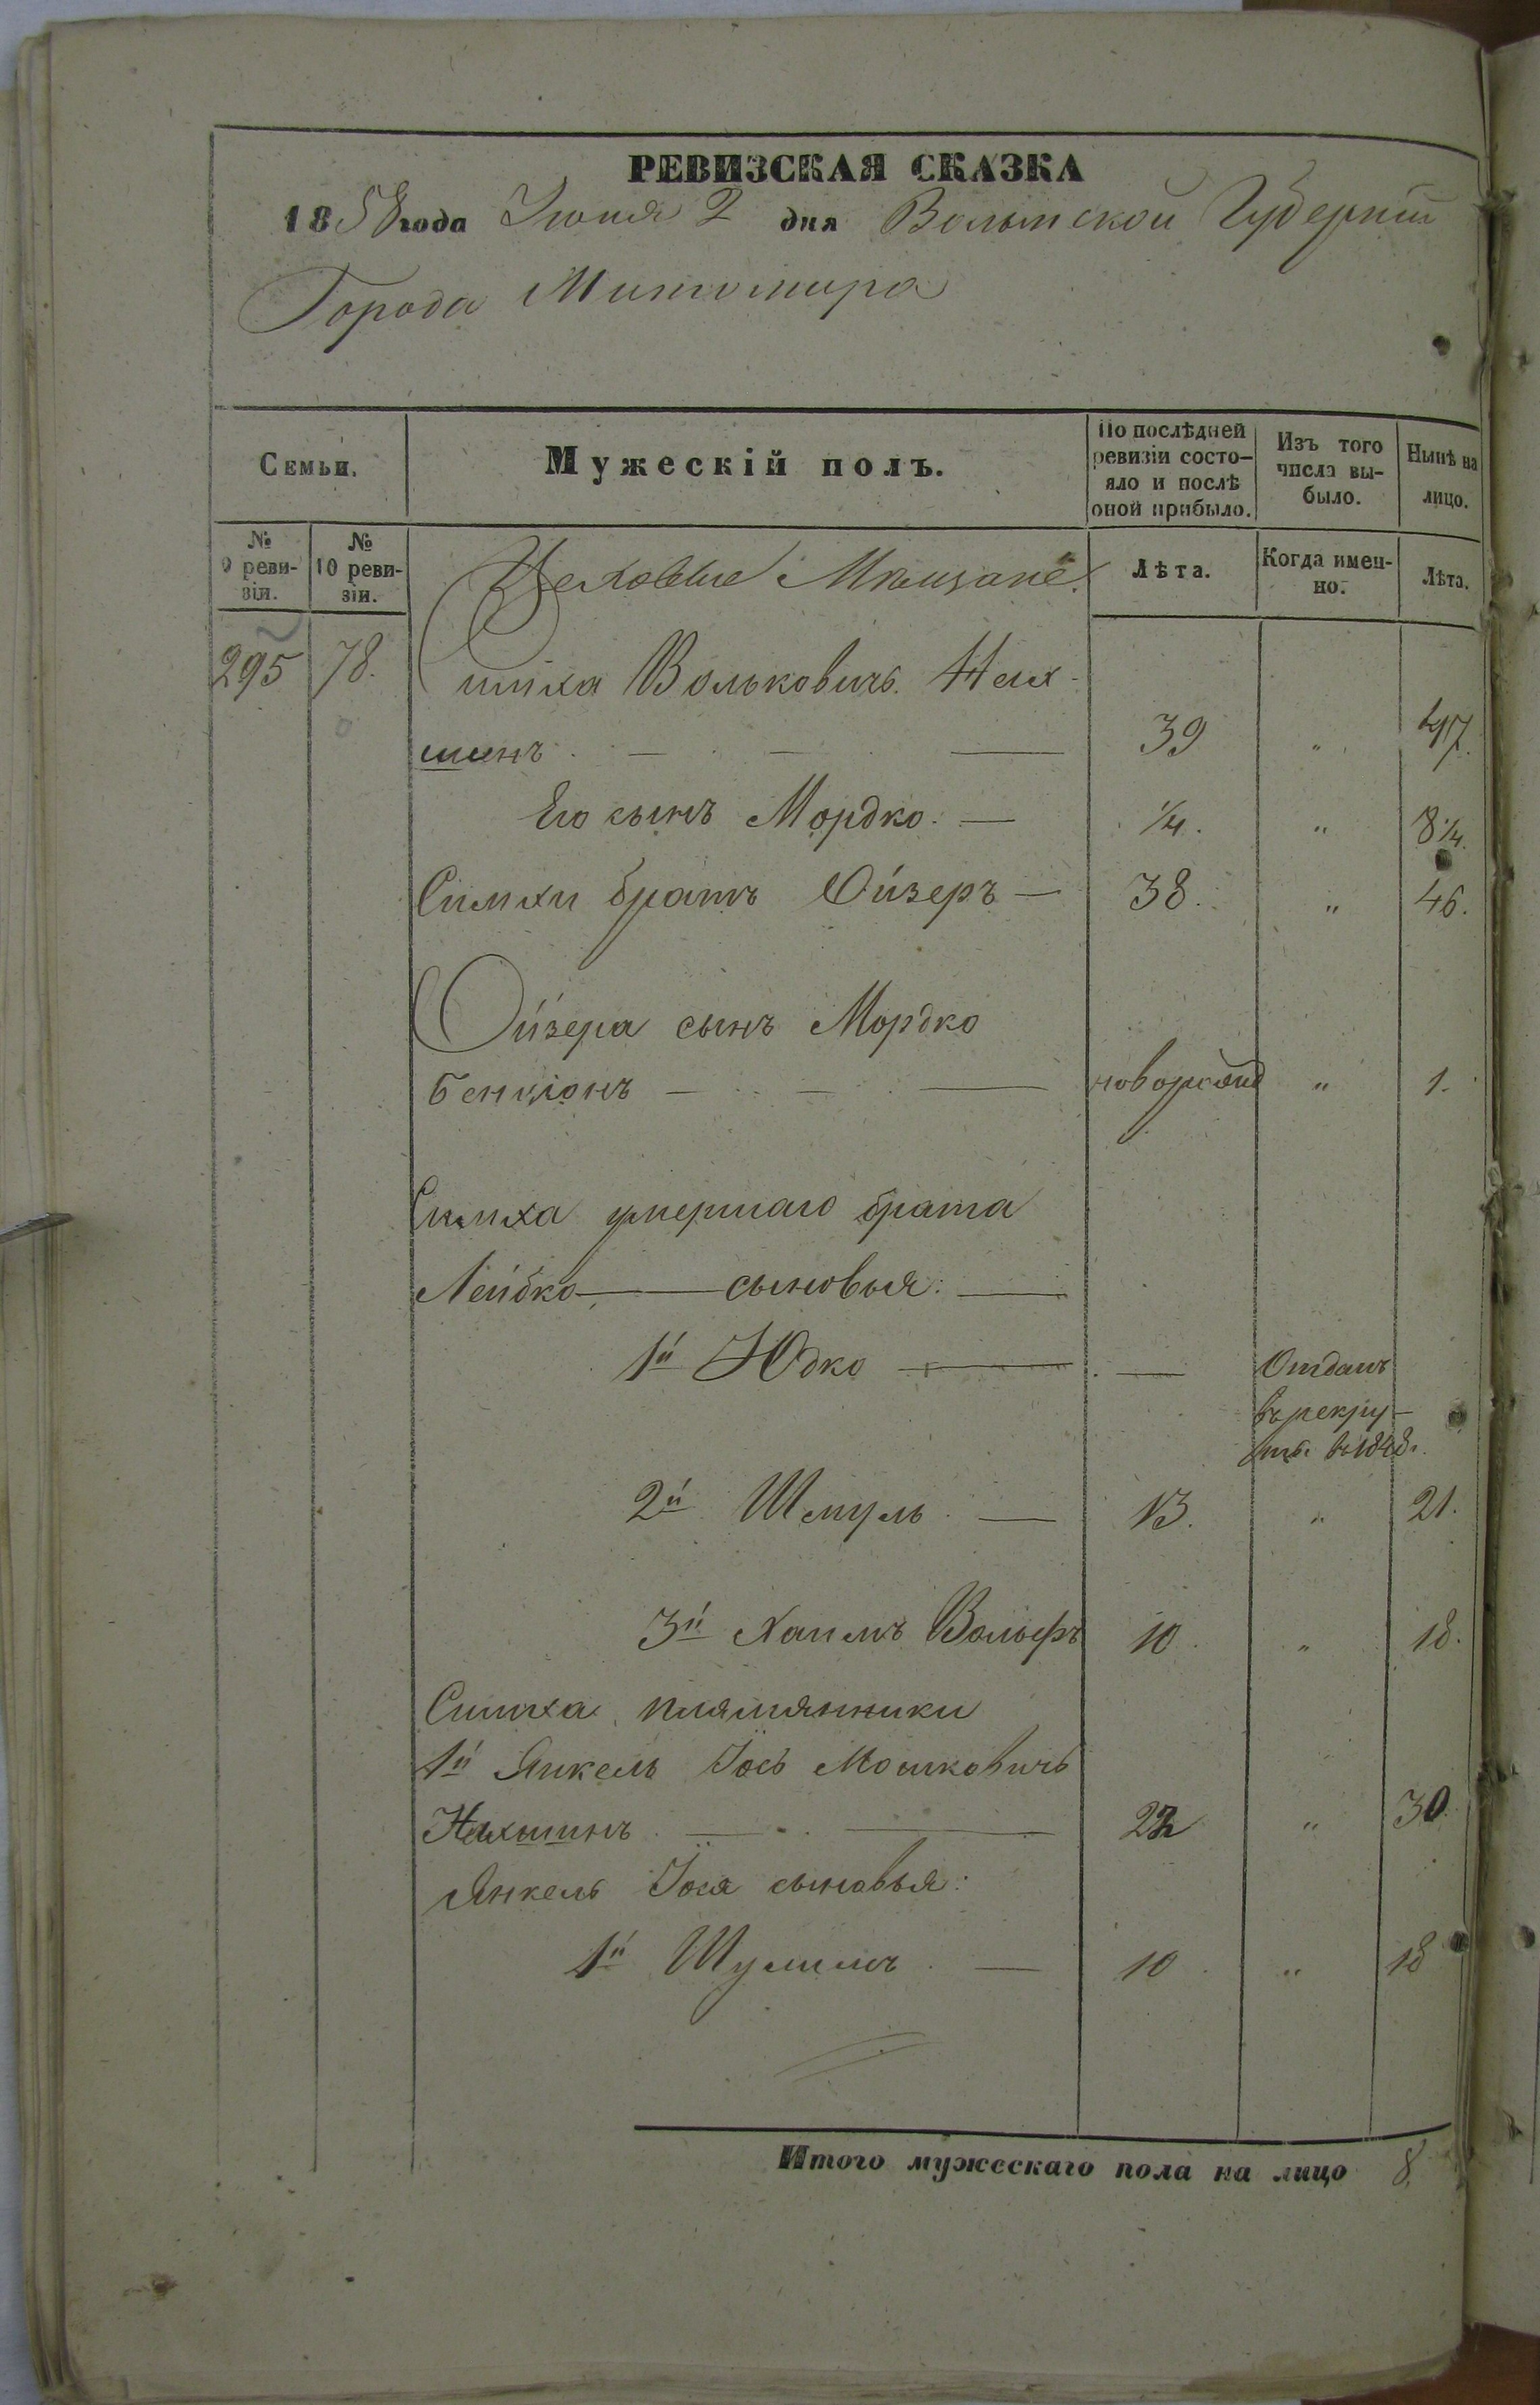 РЕВИЗСКАЯ СКАЗКА
1858 года Іюня 2 дня Волынской Губерніи
Города Житомира
Семьи.
Мужескій полъ.
По послѣдней ревизіи состо-
яло и послѣ оной прибыло.
Изъ того числа вы-
было.
Нынѣ на лицо.
№ 9 реви-
зіи.
№ 10 реви-
зіи.
Цеховые Мѣщане.
Лѣта.
Когда имен-
но.
Лѣта.
295 78. Симха Вольковичъ Нах-
шинъ 39 " 47.
Его сынъ Мордко. — 1/4. " 8 1/4.
Симхи братъ Ойзеръ — 38. " 46.
Ойзера сынъ Мордко
Бенціонъ — новорожд " 1.
Симха умершаго брата
Лейбко — сыновья: —
1й Юдко — — Отданъ
въ рекру-
ты в 1848.
2й Шмуль — 13. " 21.
3й Хаимъ Вольфъ 10. " 18.
Симха племянники
1й Янкель Іось Мошковичъ
Нахшинъ — 22 " 30.
Янкель Іося сыновья:
1й Шулимъ — 10. " 18
Итого мужескаго пола на лицо 8.